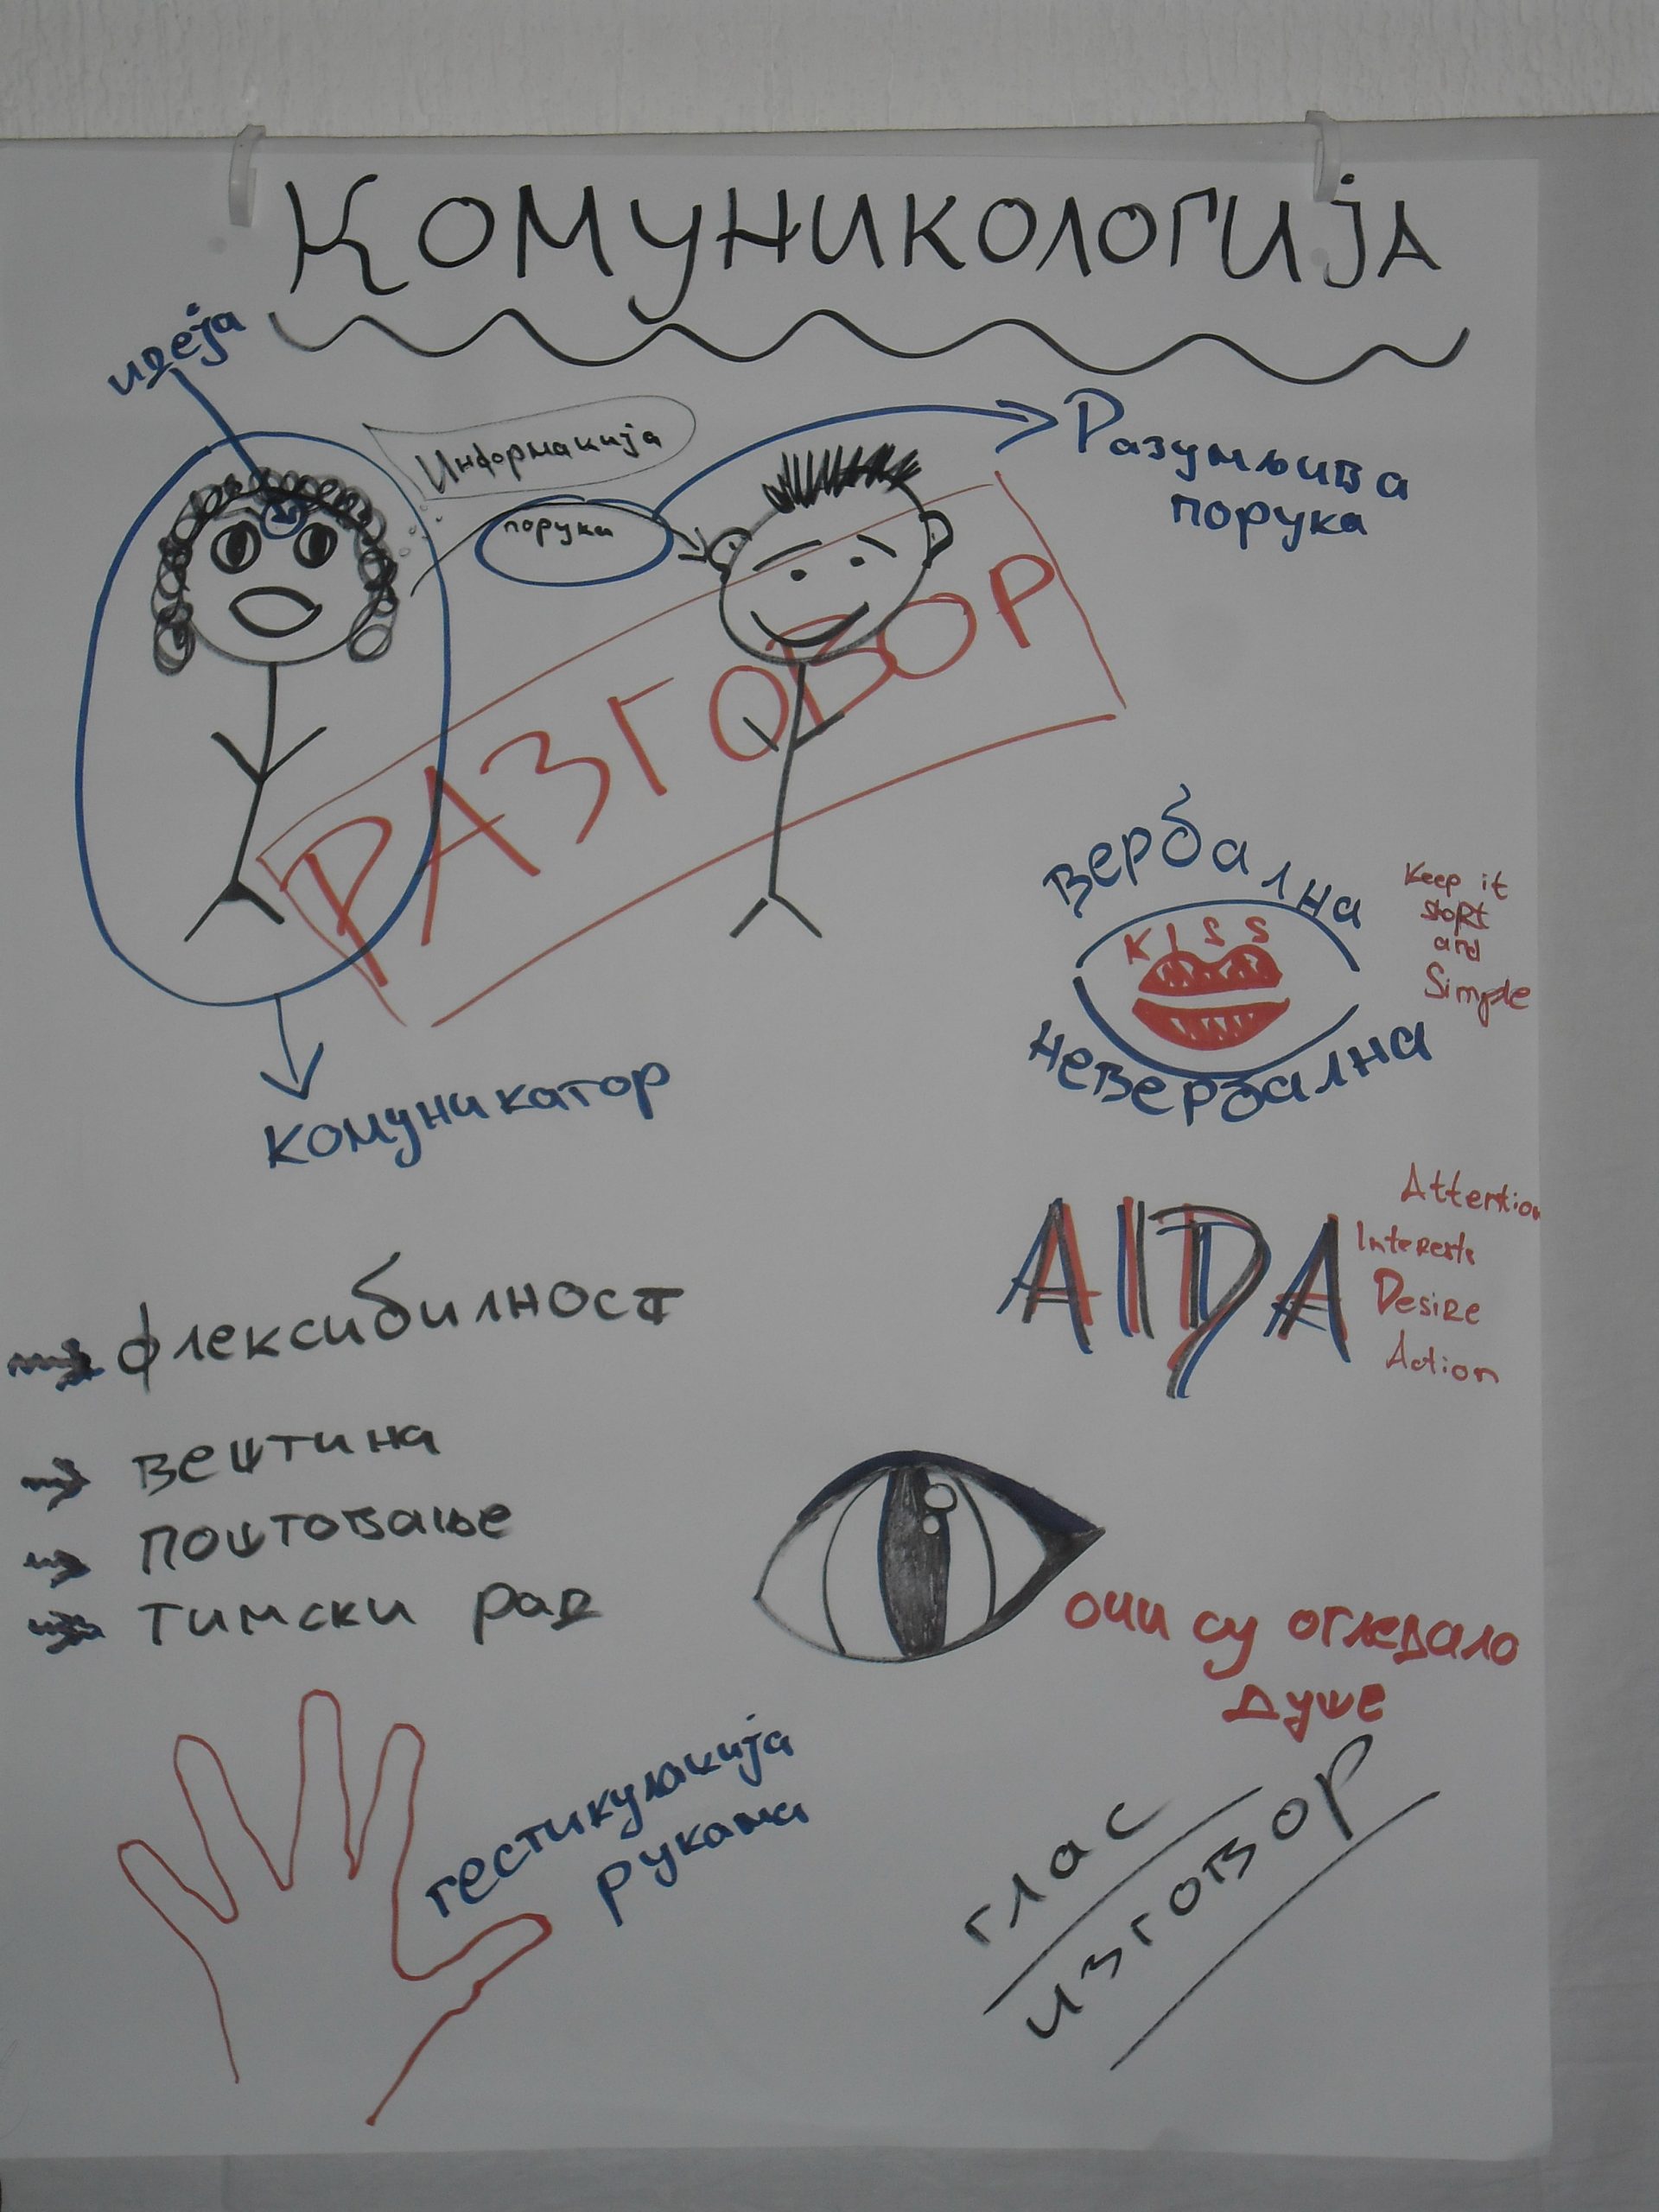 КОМУНИКОЛОГИЈА
идеја
Информација
порука
Разумљива
порука
РАЗГОВОР
комуникатор
вербална
KISS
невербална
Keep it
short
and
Simple
AIDA
Attention
Interests
Desire
Action
флексибилност
вештина
поштовање
тимски рад
очи су огледало
душе
гестикулација
рукама
глас
изговор